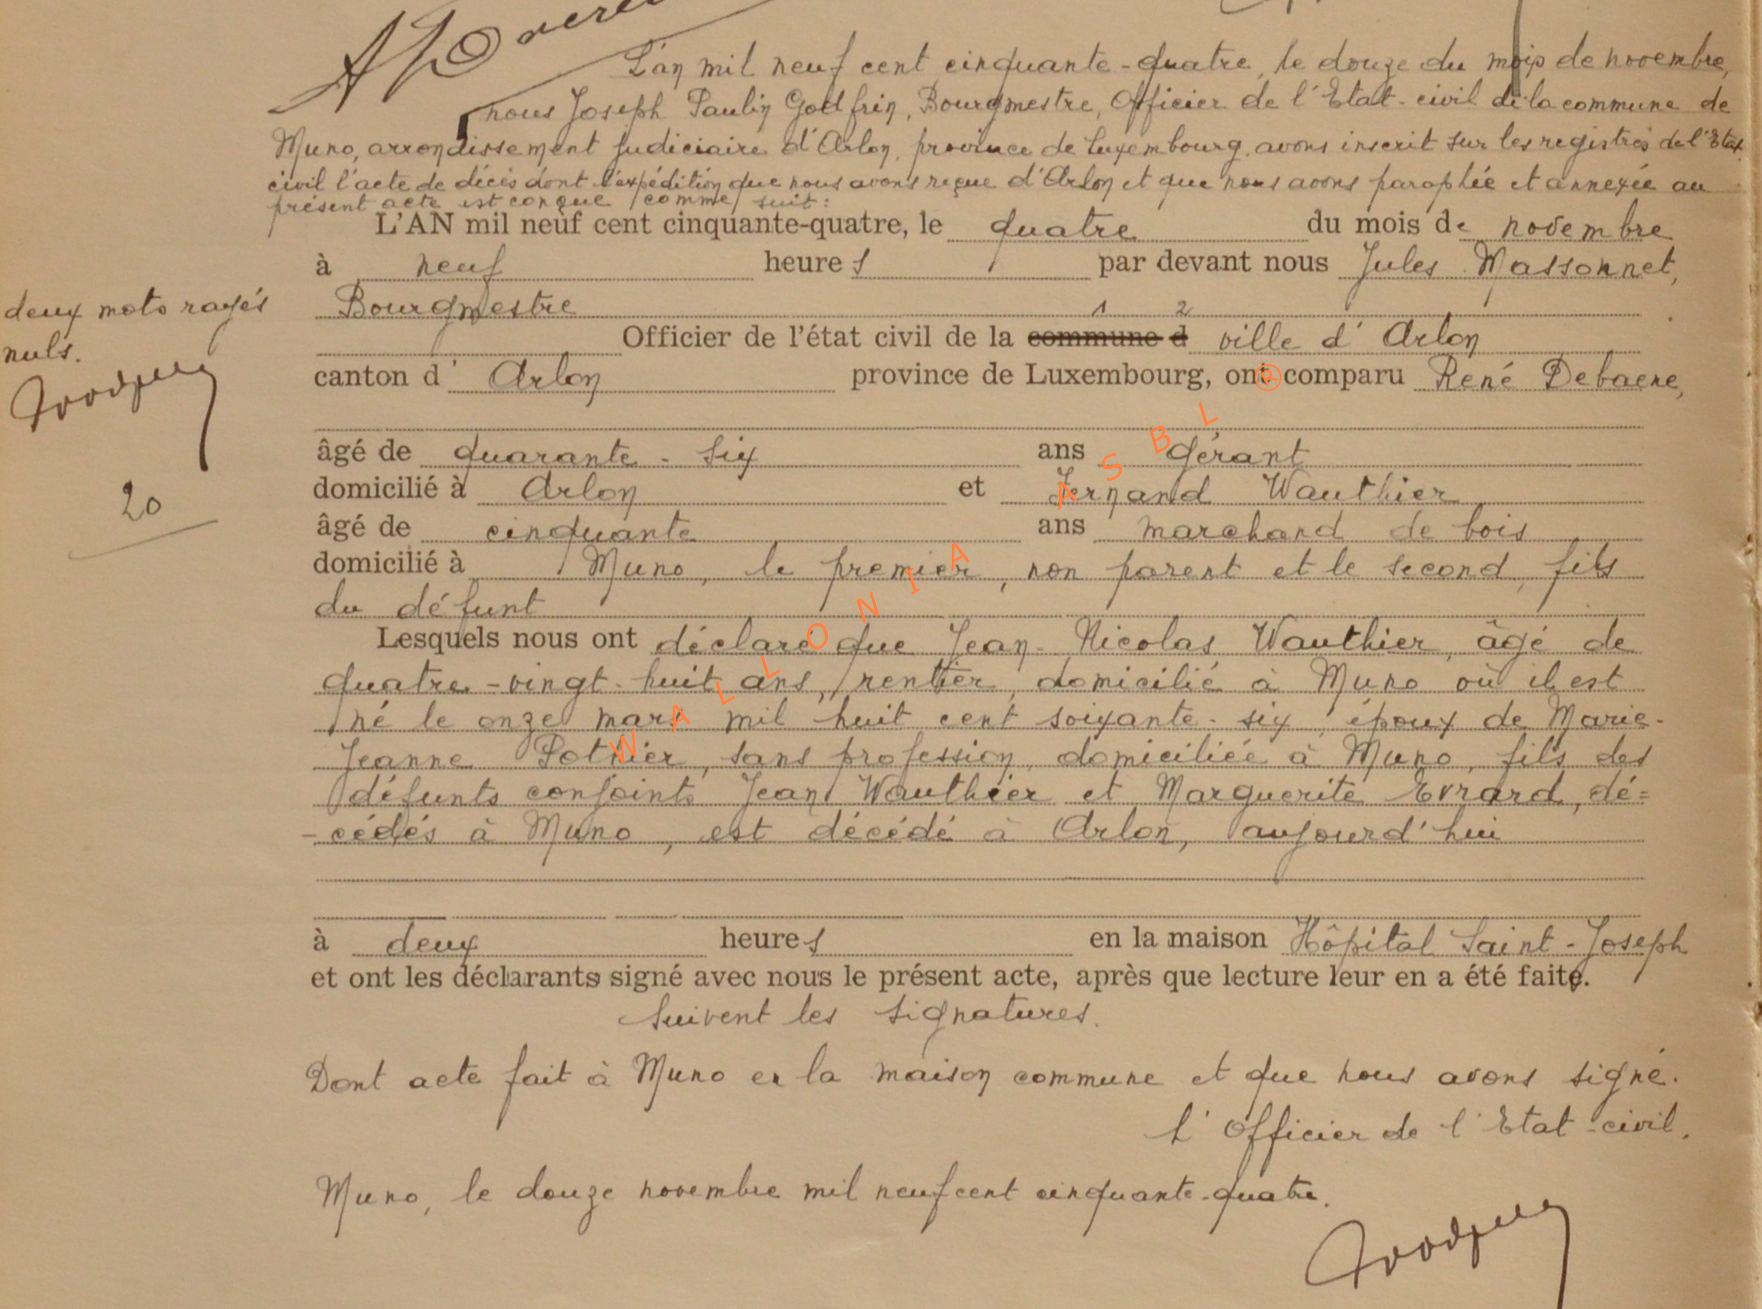 L'an mil neuf cent cinquante-quatre, le douze du mois de novembre,
nous Joseph Paulin Godfrin, Bourgmestre, Officier de l'Etat-civil de la commune de
Muno, arrondissement judiciaire d'Arlon, province de Luxembourg, avons inscrit sur les registres de l'Etat
civil l'acte de décès dont l'expédition que nous avons reçue d'Arlon et que nous avons paraphée et annexée au
présent acte est conçue comme suit :
L'AN mil neuf cent cinquante-quatre, le quatre du mois de novembre
à neuf heures par devant nous Jules Massonnet,
deux mots rayés
Bourgmestre
nuls.
1 2
Officier de l'état civil de la commune d ville d'Arlon
canton d'Arlon province de Luxembourg, ont comparu René Debaere,
âgé de quarante-six ans gérant
domicilié à Arlon et Fernand Wauthier
20
âgé de cinquante ans marchand de bois
domicilié à Muno, le premier, non parent et le second, fils
du défunt
Lesquels nous ont déclaré que Jean-Nicolas Wauthier, âgé de
quatre-vingt-huit ans, rentier, domicilié à Muno où il est
né le onze mars mil huit cent soixante-six, époux de Marie-
Jeanne Pothier, sans profession, domiciliée à Muno, fils des
défunts conjoints Jean Wauthier et Marguerite Evrard, dé=
-cédés à Muno, est décédé à Arlon, aujourd'hui
à deux heures en la maison Hôpital Saint-Joseph
et ont les déclarants signé avec nous le présent acte, après que lecture leur en a été faite.
Suivent les signatures.
Dont acte fait à Muno en la maison commune et que nous avons signé.
L'Officier de l'Etat-civil.
Muno, le douze novembre mil neuf cent cinquante-quatre.
WALLONIA ASBL ®